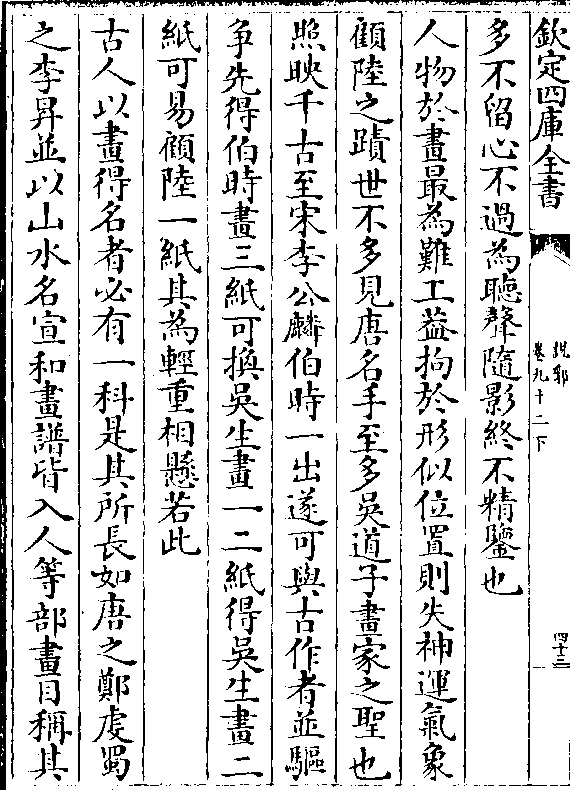 欽定四庫全書
說郛
卷九十二下
四十三
多不留心不過為聽聲隨影終不精鑒也
人物於畫最為難工葢拘於形似位置則失神運氣象
顧陸之蹟世不多見唐名手至多吳道子畫家之聖也
照映千古至宋李公麟伯時一出遂可與古作者並驅
争先得伯時畫三紙可換吳生畫一二紙得吳生畫二
紙可易顧陸一紙其為輕重相懸若此
古人以畫得名者必有一科是其所長如唐之鄭虔蜀
之李昇並以山水名宣和畫譜皆入人等部畫目稱其